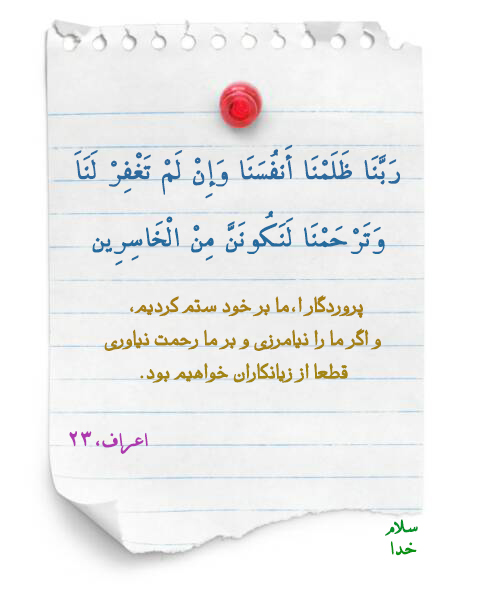 رَبَّنَا ظَلَمْنَا أَنفُسَنَا وَإِنْ لَمْ تَغْفِرْ لَنَاَ
وَتَرْحَمْنَا لَنَكُونَنَّ مِنْ الْخَاسِرِين
پروردگارا، ما بر خود ستم کردیم،
و اگر ما را نیامرزی و بر ما رحمت نیاوری
قطعا از زیانکاران خواهیم بود.
اعراف، ۲۳
سلام
خدا